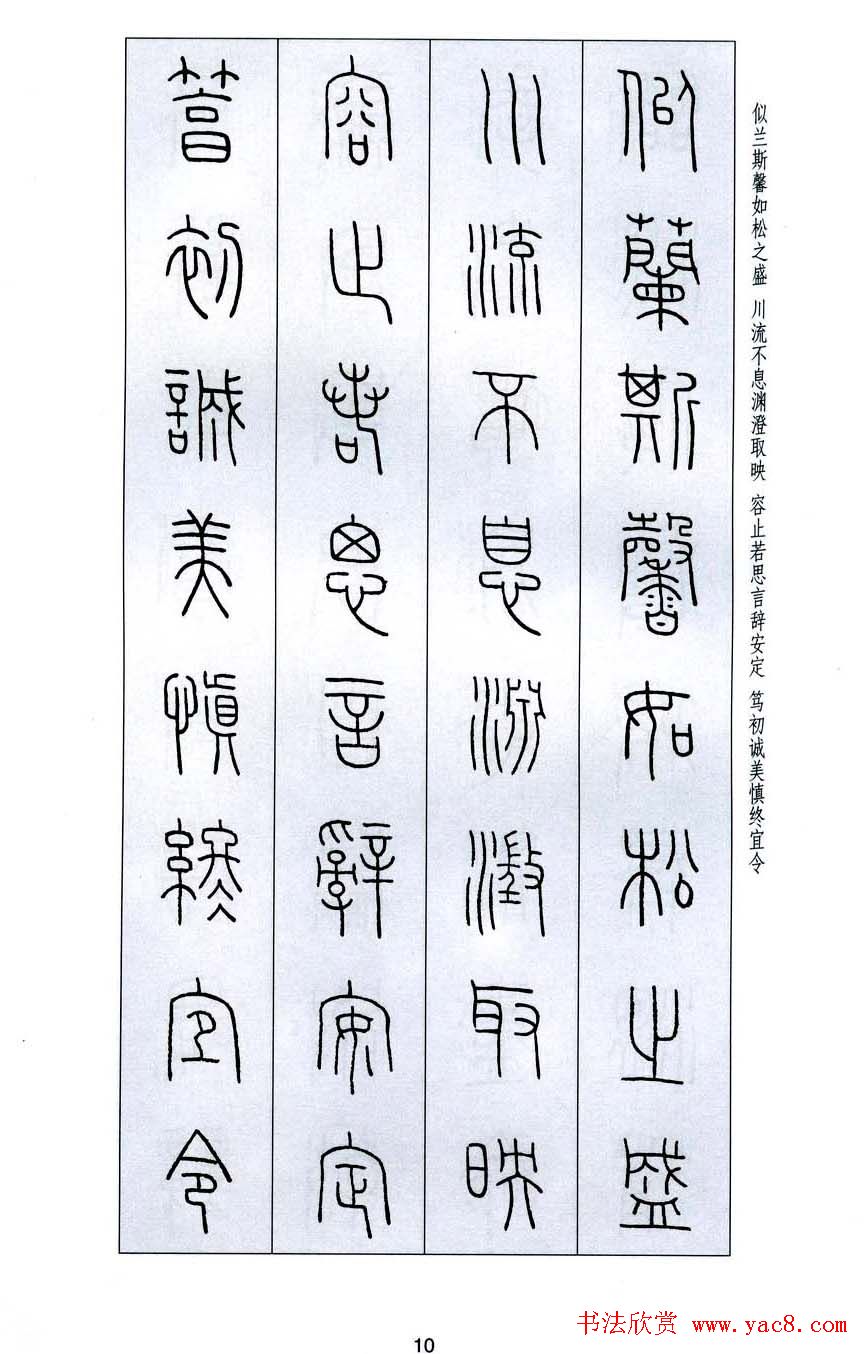 似蘭斯馨如松之盛
川流不息淵澄取映
容止若思言辭安定
篤初誠美慎終宜令
似兰斯馨如松之盛 川流不息渊澄取映 容止若思言辞安定 笃初诚美慎终宜令
10
书法欣赏 www.yac8.com